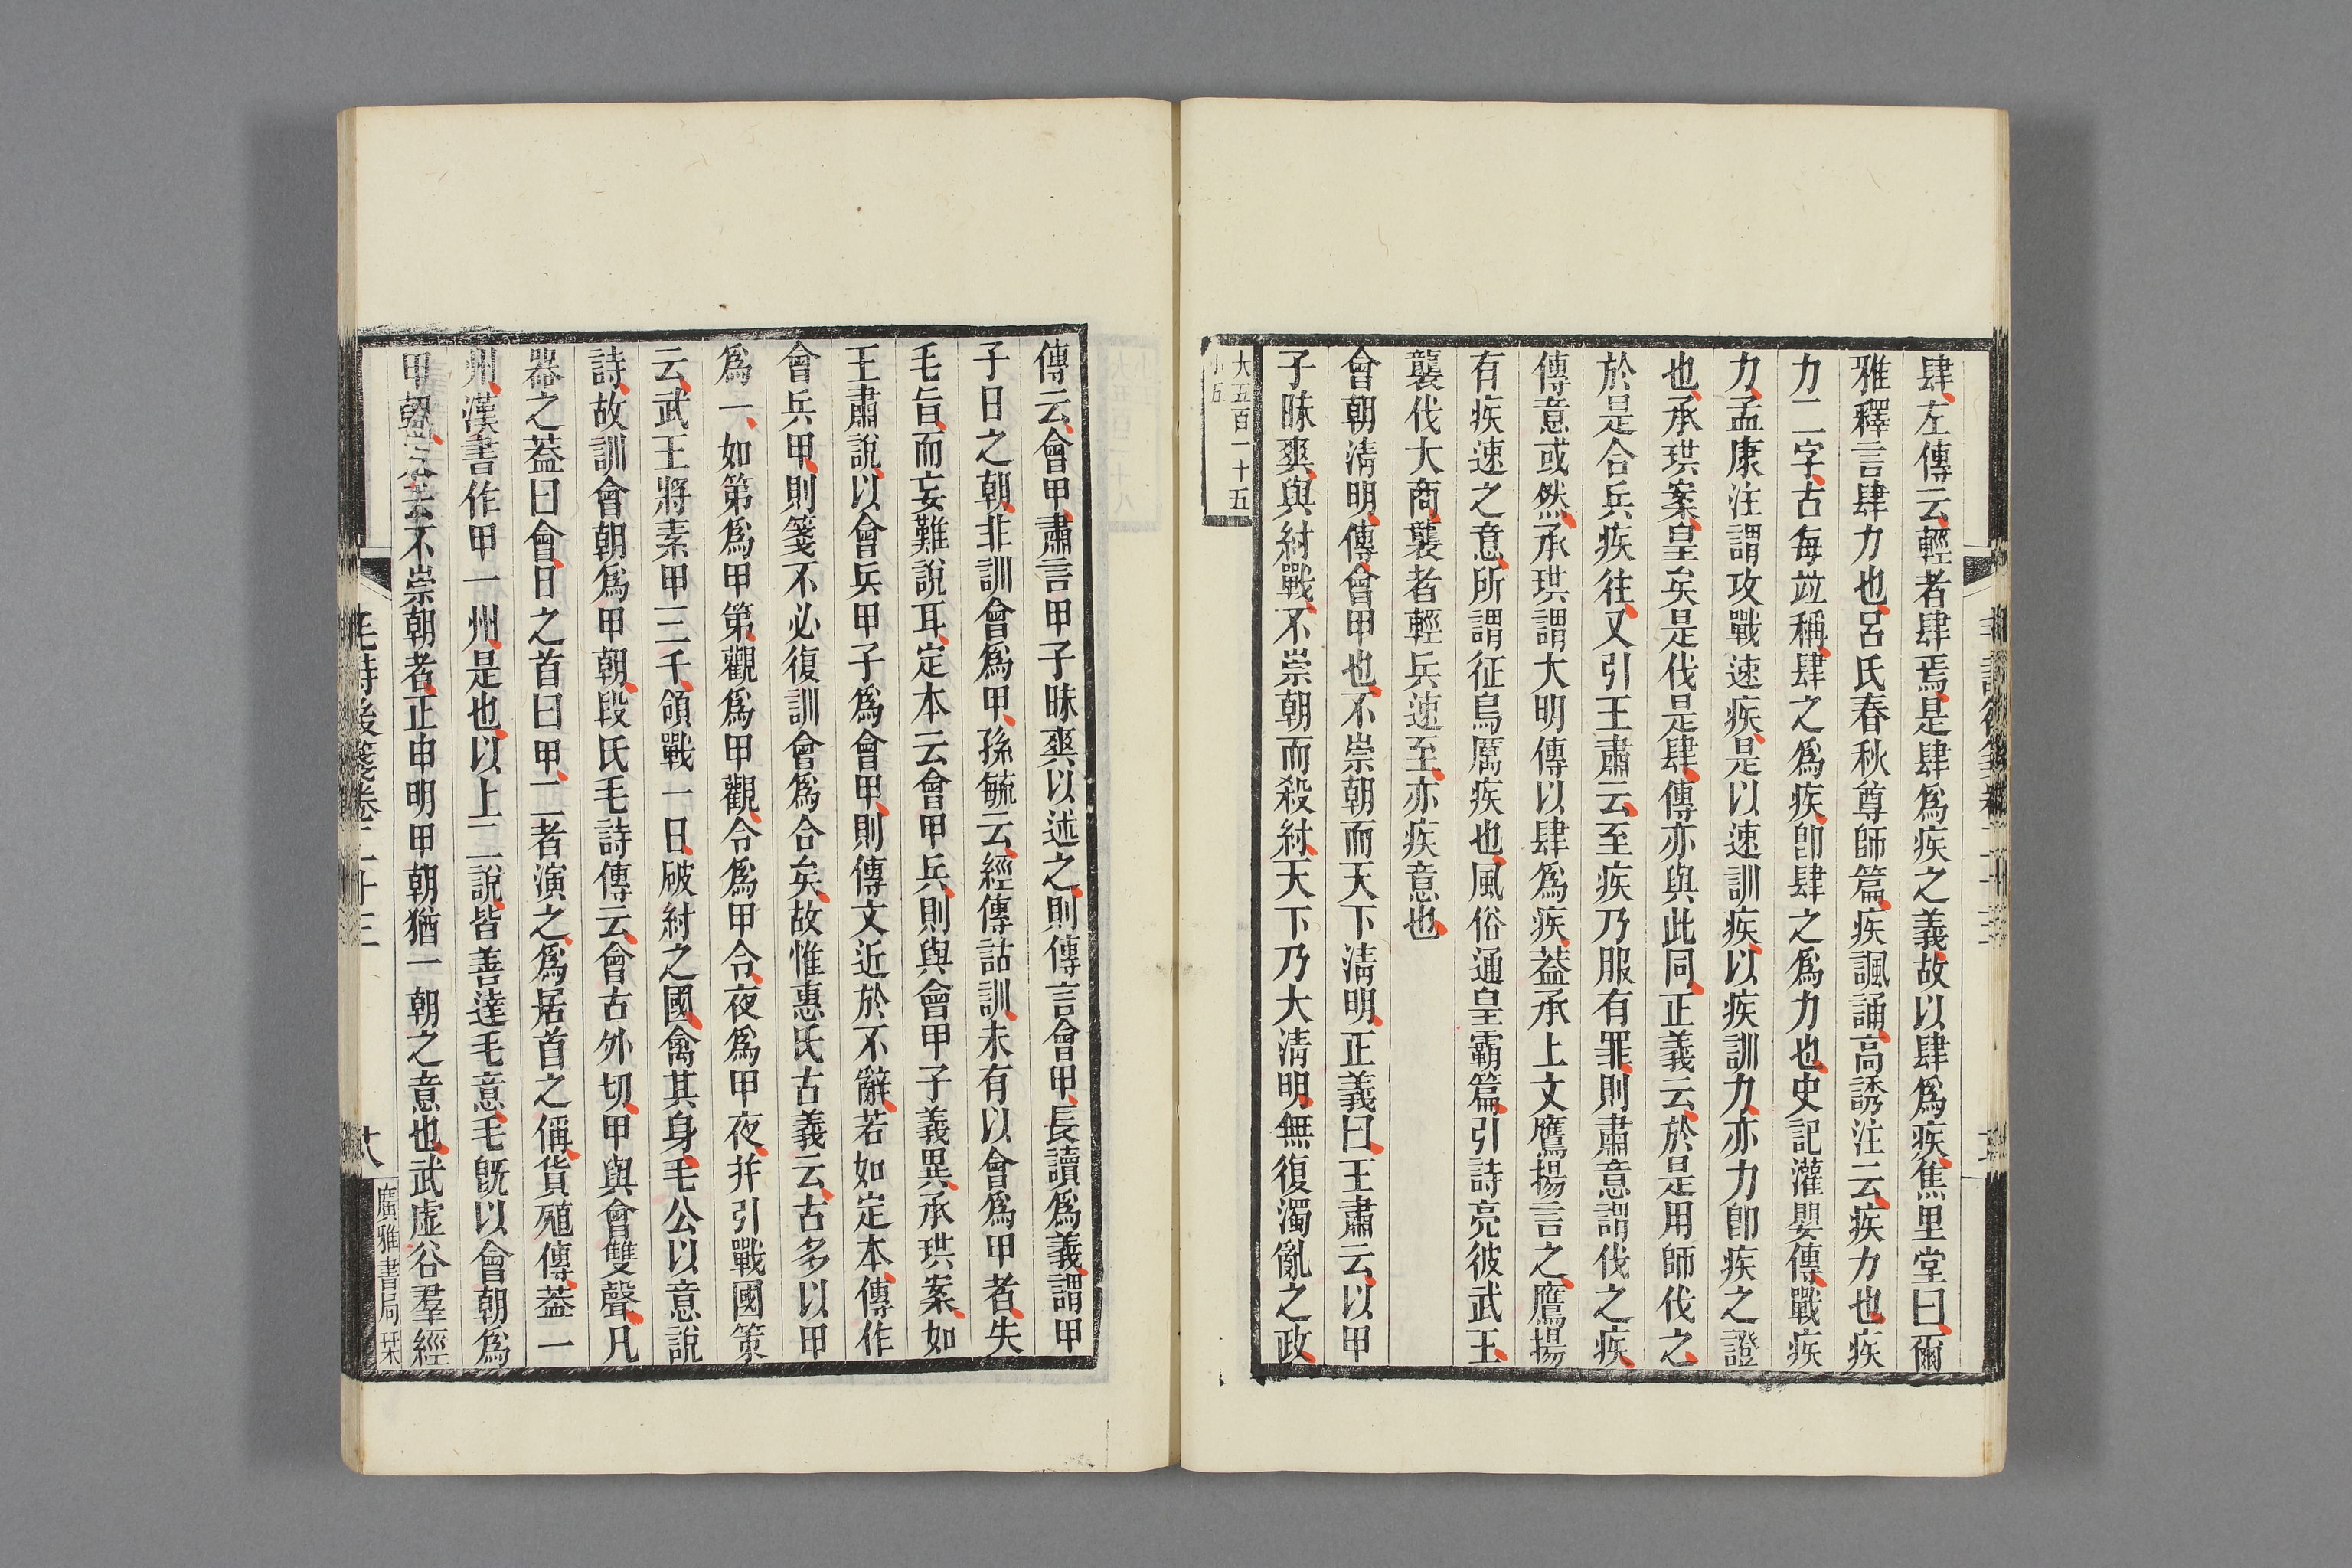 肆左傳云輕者肆焉是肆爲疾之義故以肆爲疾焦里堂曰爾
雅釋言肆力也呂氏春秋尊師篇疾諷誦高誘注云疾力也疾
力二字古每竝稱肆之爲疾卽肆之爲力也史記灌嬰傳戰疾
力孟康注謂攻戰速疾是以速訓疾以疾訓力亦力卽疾之證
也承珙案皇矣是伐是肆傳亦與此同正義云於是用師伐之
於是合兵疾往又引王肅云至疾乃服有罪則肅意謂伐之疾
傳意或然承珙謂大明傳以肆爲疾蓋承上文鷹揚言之鷹揚
有疾速之意所謂征鳥厲疾也風俗通皇霸篇引詩亮彼武王
襲伐大商襲者輕兵速至亦疾意也
會朝清明傳會甲也不崇朝而天下清明正義曰王肅云以甲
子昧爽與紂戰不崇朝而殺紂天下乃大清明無復濁亂之政
大五百一十五
小五
傳云會甲肅言甲子昧爽以述之則傳言會甲長讀爲義謂甲
子日之朝非訓會爲甲孫毓云經傳詁訓未有以會爲甲者失
毛旨而妄難說耳定本云會甲兵則與會甲子義異承珙案如
王肅說以會兵甲子爲會甲則傳文近於不辭若如定本傳作
會兵甲則箋不必復訓會爲合矣故惟惠氏古義云古多以甲
爲一如第爲甲第觀爲甲觀令爲甲令夜爲甲夜幷引戰國策
云武王將素甲三千領戰一日破紂之國禽其身毛公以意說
詩故訓會朝爲甲朝段氏毛詩傳云會古外切甲與會雙聲凡
器之蓋曰會日之首曰甲二者演之爲居首之稱貨殖傳蓋一
州漢書作甲一州是也以上二說皆善達毛意毛旣以會朝爲
甲朝又云不崇朝者正申明甲朝猶一朝之意也武虛谷羣經
毛詩後箋卷二十三
十八
廣雅書局栞